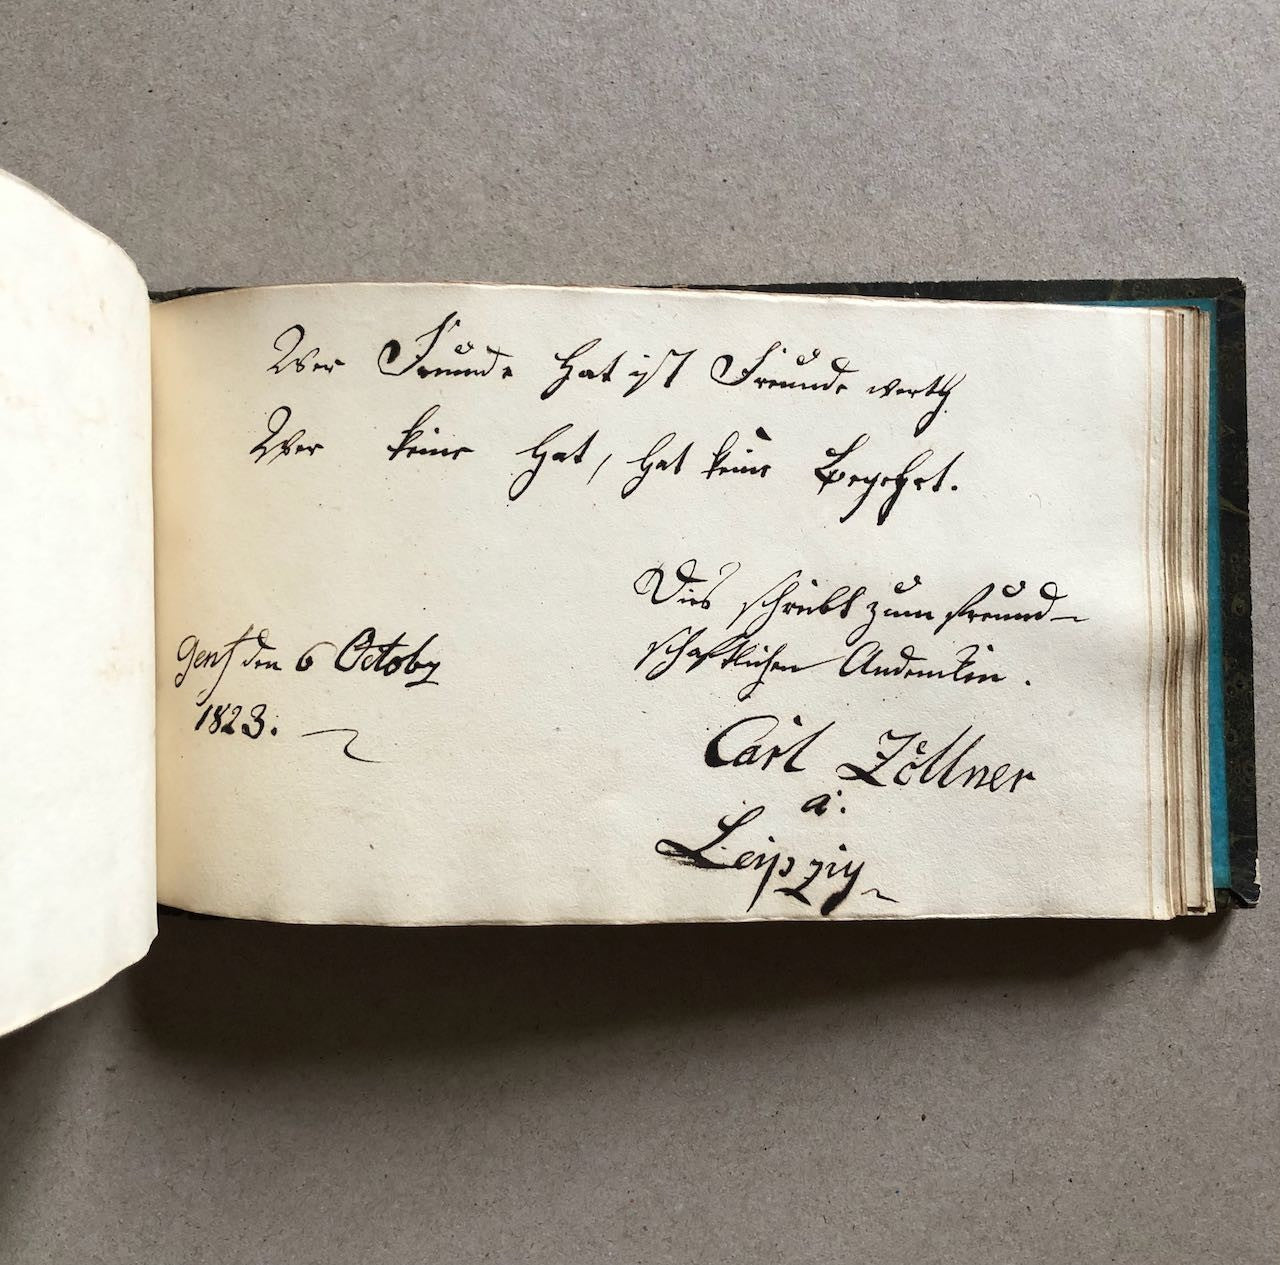 Wer Freunde hat ist Freunde werth
Wer keine hat, hat keine begehrt.
Dies schreibt zum freund-
schaftlichen Andenken.
Genf den 6 Octobr
1823.
Carl Zöllner
a:
Leipzig